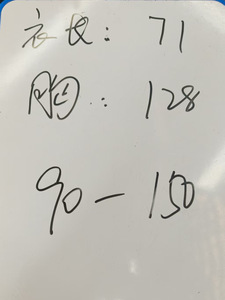 衣长：71
胸：128
90－150